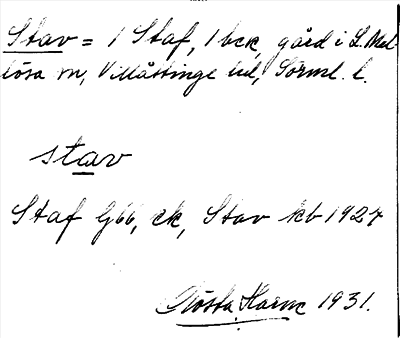 Stav = 1 Staf, 1 bck, gård i L. Mel-
lösa sn, Villåttinge hd, Sörml. l.
stav
Staf G66, ek, Stav kb 1927
Gösta Harne 1931.